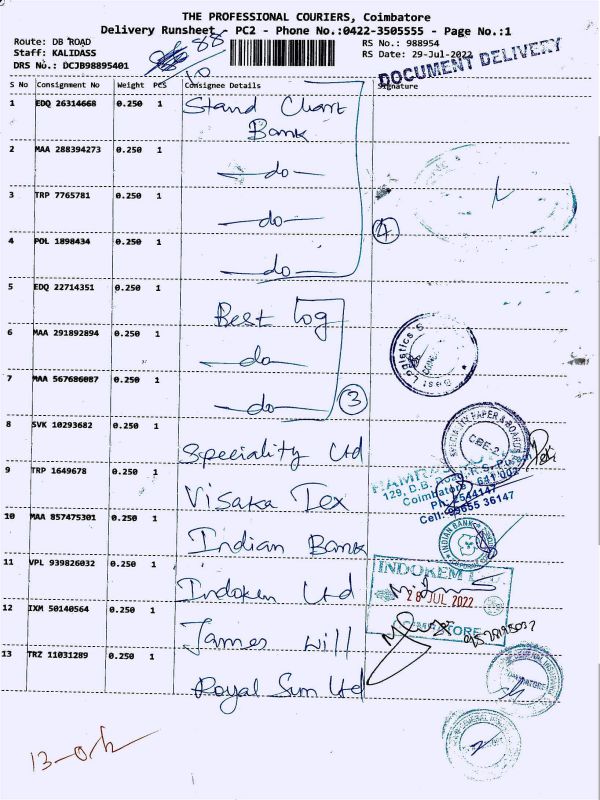 THE PROFESSIONAL COURIERS, Coimbatore
Delivery Runsheet - PC2 - Phone No.:0422-3505555 - Page No.:1
Route: DB ROAD
Staff: KALIDASS
DRS No.: DCJB98895401
88
10
RS No.: 988954
RS Date: 29-Jul-2022
DOCUMENT DELIVERY
S No Consignment No Weight PCS Consignee Details Signature
1 EDQ 26314668 0.250 1 Stand Chart Bank
2 MAA 288394273 0.250 1 -do-
3 TRP 7765781 0.250 1 -do-
4 POL 1898434 0.250 1 -do-
4
5 EDQ 22714351 0.250 1 Best Log
6 MAA 291892894 0.250 1 -do-
7 MAA 567686087 0.250 1 -do-
3
Best Logistics
8 SVK 10293682 0.250 1 Speciality Ltd
SPECIALITY PAPER & BOARDS
CBE-2
9 TRP 1649678 0.250 1 Visaka Tex
129, D.B. Road, R.S. Puram
Coimbatore - 641 002
Ph: 2544147
Cell: 98655 36147
10 MAA 857475301 0.250 1 Indian Bank
INDIAN BANK
11 VPL 939826032 0.250 1 Indokem Ltd
INDOKEM LTD
28 JUL 2022
COIMBATORE
12 IXM 50140564 0.250 1 James Will
13 TRZ 11031289 0.250 1 Royal Sum Ltd
13-